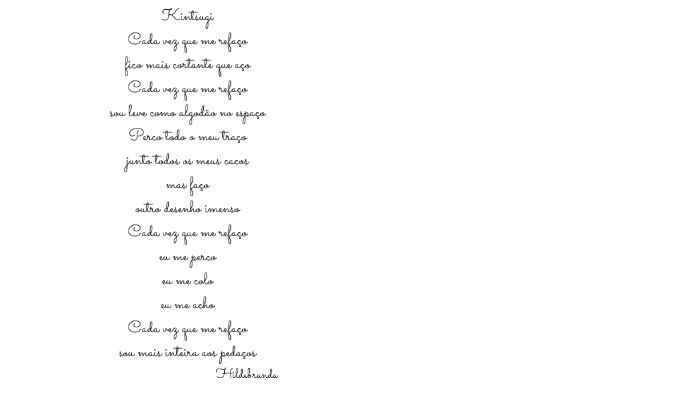 Kintsugi
Cada vez que me refaço
fico mais cortante que aço
Cada vez que me refaço
sou leve como algodão no espaço
Perco todo o meu traço
junto todos os meus cacos
mas faço
outro desenho imenso
Cada vez que me refaço
eu me perco
eu me colo
eu me acho
Cada vez que me refaço
sou mais inteira aos pedaços
Hildebranda